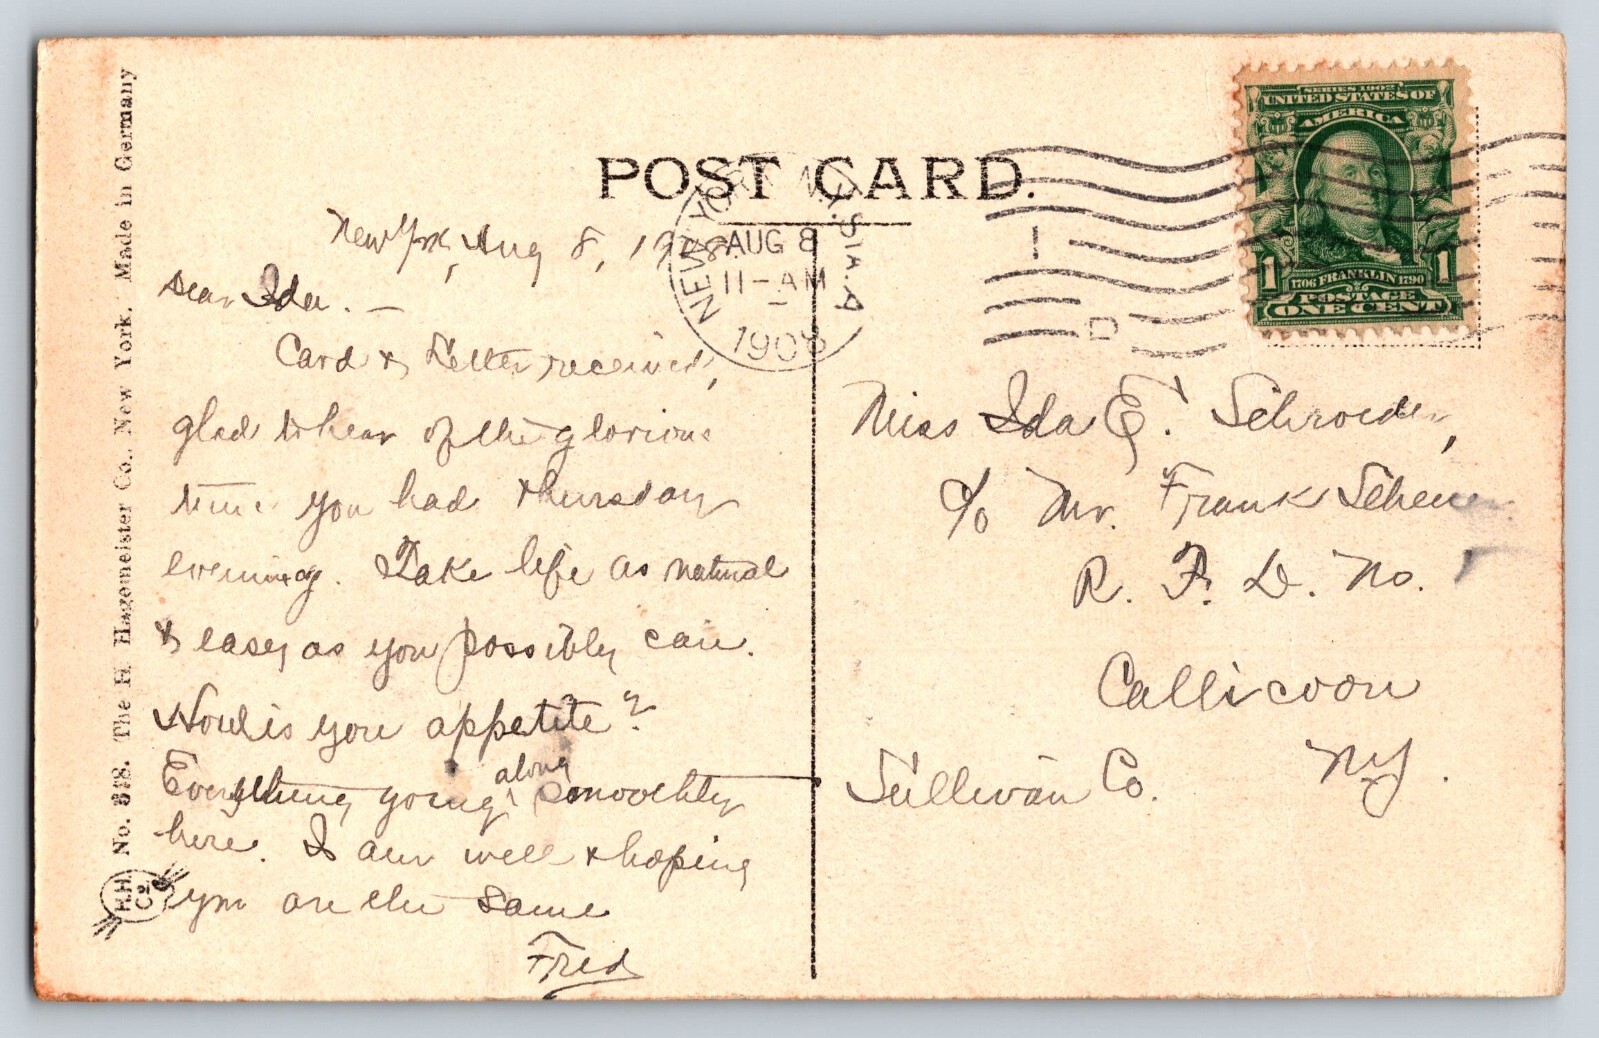 POST CARD.
SERIES 1902
UNITED STATES OF
AMERICA
1 1
1706 FRANKLIN 1790
POSTAGE
ONE CENT
NEW YORK, N.Y. STA. A
AUG 8
11-AM
1908
1
D
New York, Aug 8, 1908.
Dear Ida. —
Card & Letter received,
glad to hear of the glorious
time you had thursday
evening. Take life as natural
& easy as you possibly can.
How is you appetite?
Everything going along smoothly
here. I am well & hoping
you are the same
Fred
Miss Ida E. Schroeder,
c/o Mr. Frank
R. F. D. No. 1
Callicoon
Sullivan Co. NY.
No. 348. The H. Hagemeister Co., New York. Made in Germany
H.H.
Co.